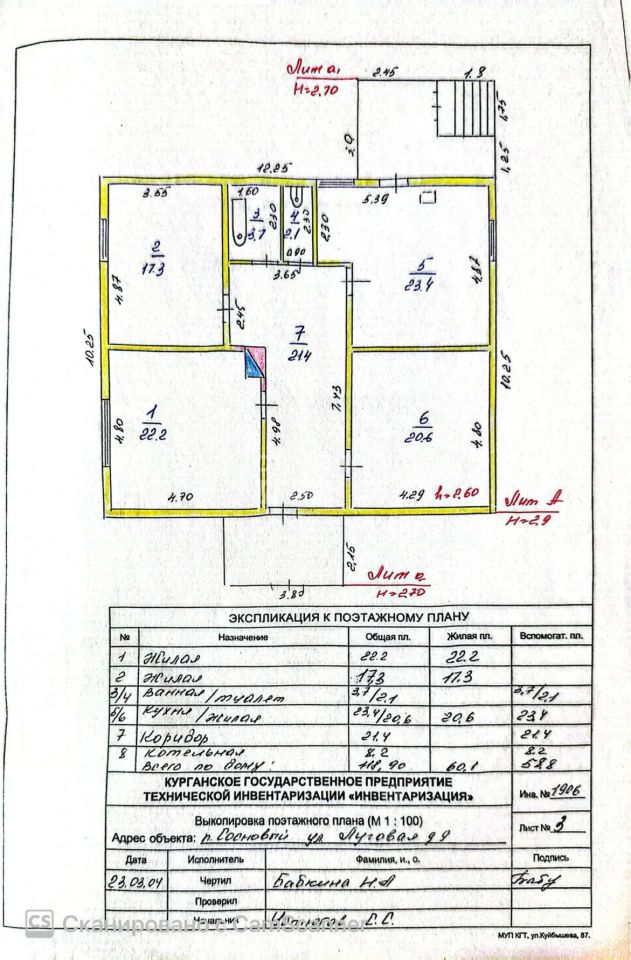 Лит а₁
Н=2.70
2.45
1.8
1.75
1.25
3.0
12.25
3.55
1.60
3
3.7
2.30
4
2.1
2.30
0.90
2.30
5.39
2
17.3
4.87
3.65
2.45
5
23.4
4.87
7
21.4
10.25
10.25
1
22.2
4.80
4.98
7.43
6
20.6
4.80
4.70
2.50
4.29
h=2.60
Лит А
Н=2.9
2.15
3.80
Лит а
Н=2.70
ЭКСПЛИКАЦИЯ К ПОЭТАЖНОМУ ПЛАНУ
№ Назначение Общая пл. Жилая пл. Вспомогат. пл.
1 Жилая 22.2 22.2
2 Жилая 17.3 17.3
3/4 Ванная/туалет 3,7/2.1 3,7/2.1
5/6 Кухня/жилая 23,4/20,6 20,6 23.4
7 Коридор 21.4 21.4
8 Котельная 8.2 8.2
Всего по дому: 118,90 60,1 58.8
КУРГАНСКОЕ ГОСУДАРСТВЕННОЕ ПРЕДПРИЯТИЕ
ТЕХНИЧЕСКОЙ ИНВЕНТАРИЗАЦИИ «ИНВЕНТАРИЗАЦИЯ»
Инв. № 1906
Выкопировка поэтажного плана (М 1 : 100)
Адрес объекта: п. Сосновый ул Луговая д 9
Лист № 3
Дата Исполнитель Фамилия, и., о. Подпись
23.03.04 Чертил Бабкина Н.А
Проверил
Начальник С.С.
CS Сканировано с CamScanner
МУП КГТ, ул.Куйбышева, 87.